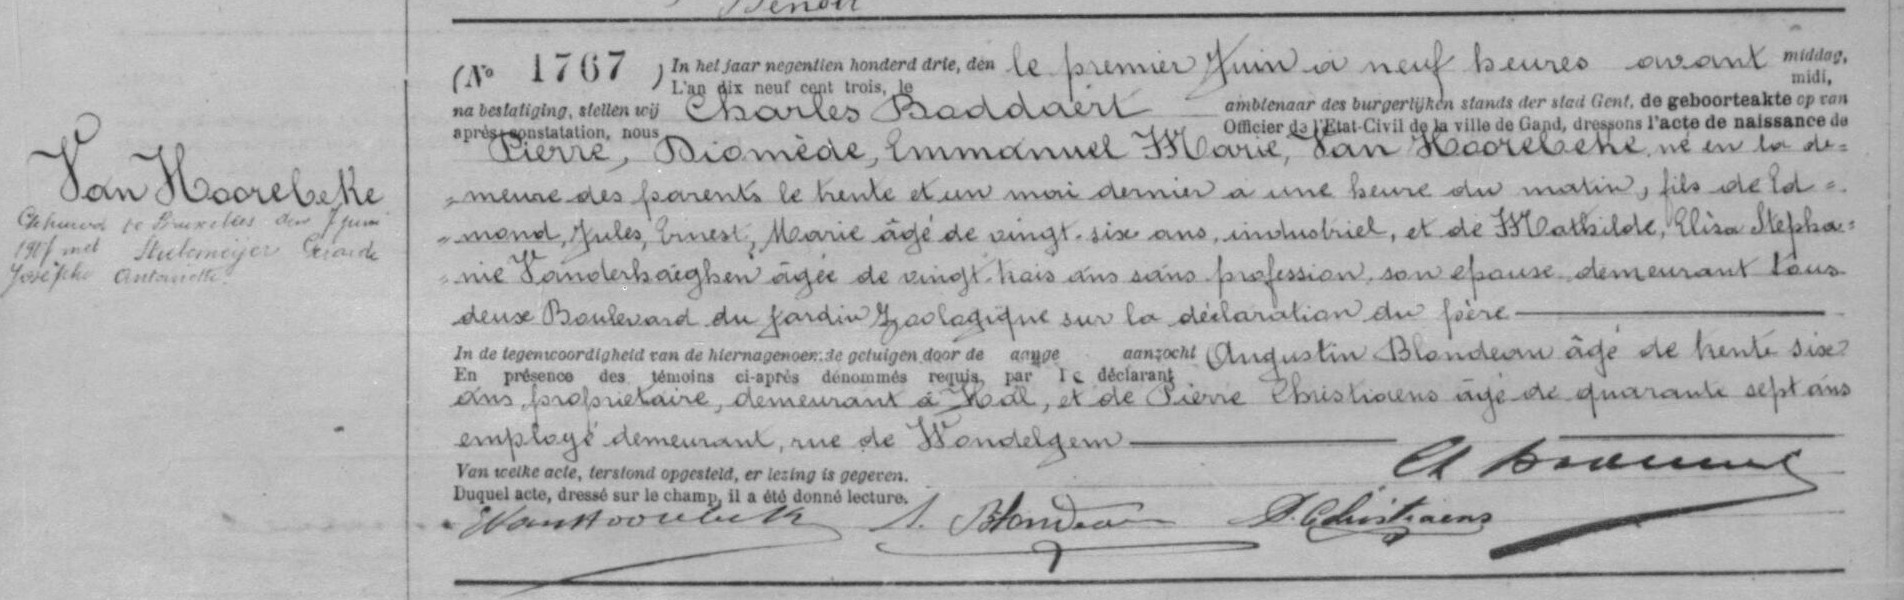 Benoit
(No 1767) In het jaar negentien honderd drie, den le premier Juin a neuf heures avant middag,
L'an dix neuf cent trois, le midi,
na bestatiging, stellen wij Charles Boddaert ambtenaar des burgerlijken stands der stad Gent, de geboorteakte op van
après constatation, nous Officier de l'Etat-Civil de la ville de Gand, dressons l'acte de naissance de
Pierre, Diomède, Emmanuel Marie, Van Hoorebeke né en la de=
=meure des parents le trente et un mai dernier a une heure du matin, fils de Ed=
=mond, Jules, Ernest, Marie âgé de vingt-six ans, industriel, et de Mathilde, Elisa Stepha=
=nie Vanderhaeghen âgée de vingt-trois ans sans profession son epouse demeurant tous
deux Boulevard du Jardin Zoologique sur la déclaration du père
In de tegenwoordigheid van de hiernagenoemde getuigen door de aange aanzocht Augustin Blondeau âgé de trente six
En présence des témoins ci-après dénommés requis par le déclarant
ans, proprietaire, demeurant à Hal, et de Pierre Christiaens âgé de quarante sept ans
employé demeurant, rue de Wondelgem
Van welke acte, terstond opgesteld, er lezing is gegeven.
Duquel acte, dressé sur le champ, il a été donné lecture.
Ch Boddaert
EVanhoorebeke A. Blondeau P. Christiaens
Van Hoorebeke
Gehuwd te Bruxelles den 7 juni
met
Josèphe Antoinette